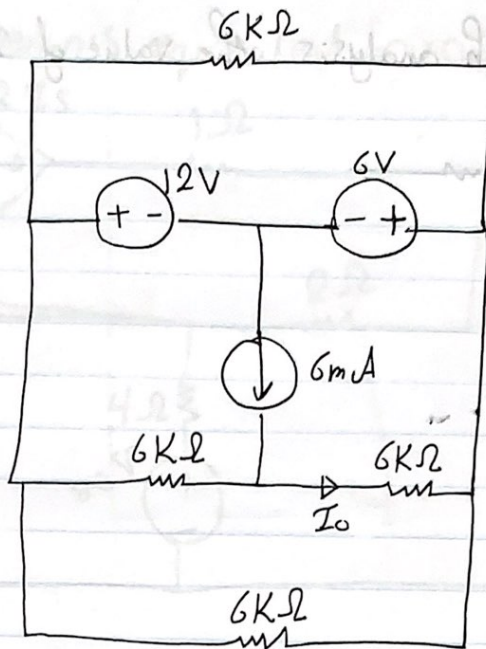 6KΩ
12V
6V
+ -
- +
6mA
6KΩ
6KΩ
I₀
6KΩ